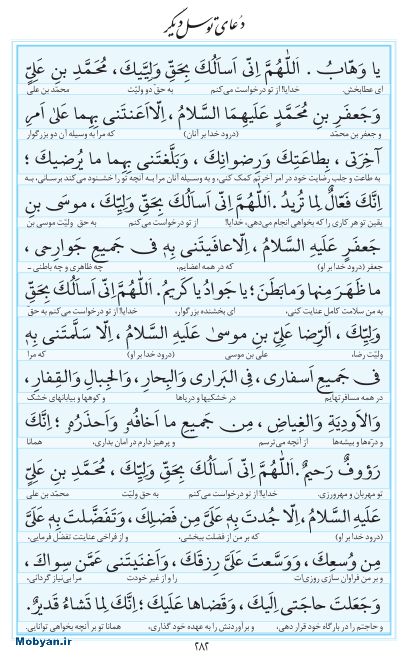 دعای توسل دیگر
یا وَهّابُ . اَللّٰهُمَّ اِنّی اَسأَلُكَ بِحَقِّ وَلِیَّیكَ، مُحَمَّدِ بنِ عَلِیٍّ
ای عطابخش. خدایا! از تو درخواست می‌کنم به حق دو ولیّت محمّد بن علی
وَجَعفَرِ بنِ مُحَمَّدٍ عَلَیهِمَا السَّلامُ، اِلّا اَعَنتَنی بِهِما عَلیٰ اَمرِ
و جعفر بن محمّد (درود خدا بر آنان) که مرا به وسیله آن دو بزرگوار
آخِرَتی، بِطاعَتِكَ وَرِضوانِكَ، وَبَلَّغتَنی بِهِما ما یُرضیكَ؛
به طاعت و جلب رضایت خود در امر آخرتم کمک کنی، و به وسیله آنان مرا به آنچه تو را خشنود می‌کند برسانی، به
اِنَّكَ فَعّالٌ لِما تُریدُ. اَللّٰهُمَّ اِنّی اَسأَلُكَ بِحَقِّ وَلِیِّكَ، موسَی بنِ
یقین تو هر کاری را که بخواهی انجام می‌دهی، خدایا! از تو درخواست می‌کنم به حق ولیّت موسی بن
جَعفَرٍ عَلَیهِ السَّلامُ، اِلّا عافَیتَنی بِهٖ فی جَمیعِ جَوارِحی،
جعفر (درود خدا بر او) که در همه اعضایم، چه ظاهری و چه باطنی ـ
ما ظَهَرَ مِنها وَما بَطَنَ؛ یا جَوادُ یا کَریمُ. اَللّٰهُمَّ اِنّی اَسأَلُكَ بِحَقِّ
به من سلامت کامل عنایت کنی، ای بخشنده بزرگوار، خدایا! از تو درخواست می‌کنم به حق
وَلِیِّكَ، اَلرِّضا عَلِیِّ بنِ موسیٰ عَلَیهِ السَّلامُ، اِلّا سَلَّمتَنی بِهٖ
ولیّت رضا، علی بن موسی (درود خدا بر او) که مرا
فی جَمیعِ اَسفاری، فِی البَراری وَالبِحارِ، وَالجِبالِ وَالقِفارِ،
در همه مسافرتهایم در خشکیها و دریاها و کوهها و بیابانهای خشک
وَالاَودِیَةِ وَالغِیاضِ، مِن جَمیعِ ما اَخافُهُ وَاَحذَرُهُ؛ اِنَّكَ
و درّه‌ها و بیشه‌ها از آنچه می‌ترسم و پرهیز دارم در امان بداری، همانا
رَؤُوفٌ رَحیمٌ. اَللّٰهُمَّ اِنّی اَسأَلُكَ بِحَقِّ وَلِیِّكَ، مُحَمَّدِ بنِ عَلِیٍّ
تو مهربان و مهرورزی. خدایا! از تو درخواست می‌کنم به حق ولیّت محمّد بن علی
عَلَیهِ السَّلامُ، اِلّا جُدتَ بِهٖ عَلَیَّ مِن فَضلِكَ، وَتَفَضَّلتَ بِهٖ عَلَیَّ
(درود خدا بر او) که بر من از فضلت ببخشی، و از فراخی عنایتت تفضّل فرمایی،
مِن وُسعِكَ، وَوَسَّعتَ عَلَیَّ رِزقَكَ، وَاَغنَیتَنی عَمَّن سِواكَ،
و بر من فراوان سازی روزی‌ات را و از غیر خودت مرا بی‌نیاز گردانی،
وَجَعَلتَ حاجَتی اِلَیكَ، وَقَضاها عَلَیكَ؛ اِنَّكَ لِما تَشاءُ قَدیرٌ.
و حاجتم را در بارگاه خود قرار دهی، و برآوردنش را به عهده خود گذاری، همانا تو بر آنچه بخواهی توانایی.
۲۸۲
Mobyan.ir